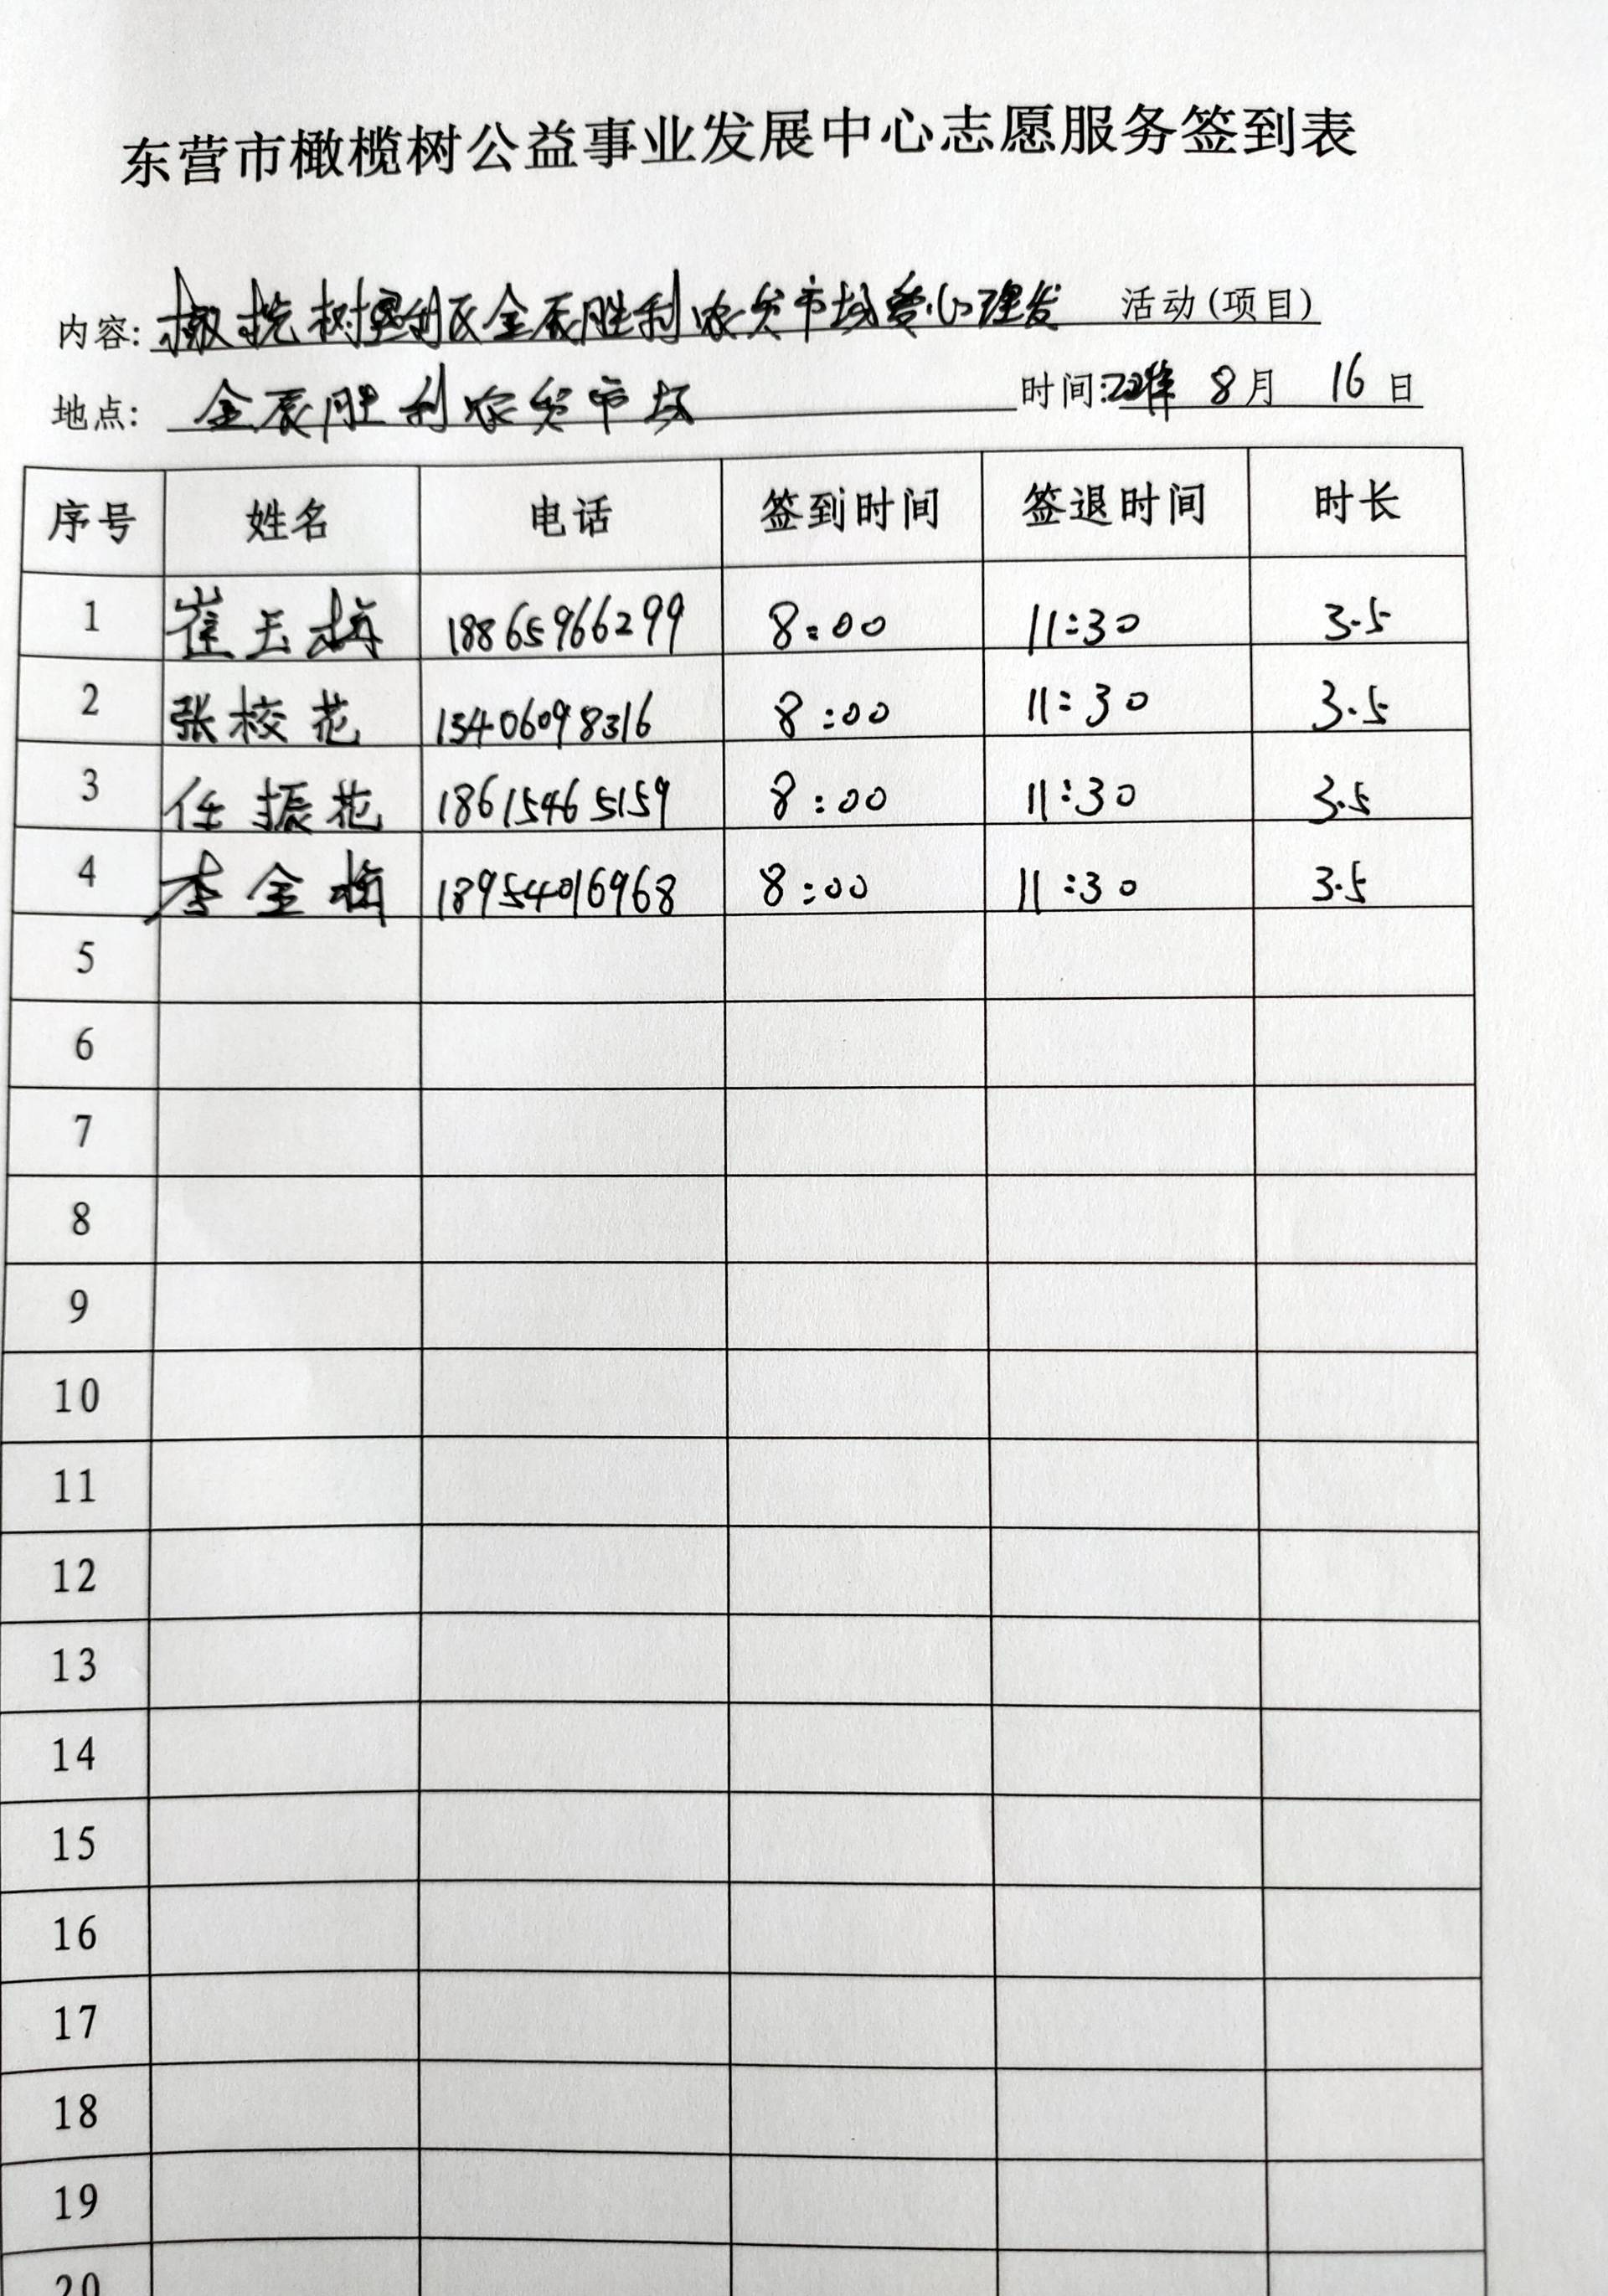 东营市橄榄树公益事业发展中心志愿服务签到表
内容: 橄榄树垦利区金辰胜利农贸市场爱心理发 活动(项目)
地点: 金辰胜利农贸市场 时间: 年 8月 16日
序号 姓名 电话 签到时间 签退时间 时长
1 崔玉梅 18865966299 8:00 11:30 3.5
2 张校花 15406098316 8:00 11:30 3.5
3 任振花 18615465159 8:00 11:30 3.5
4 李金梅 18954016968 8:00 11:30 3.5
5
6
7
8
9
10
11
12
13
14
15
16
17
18
19
20